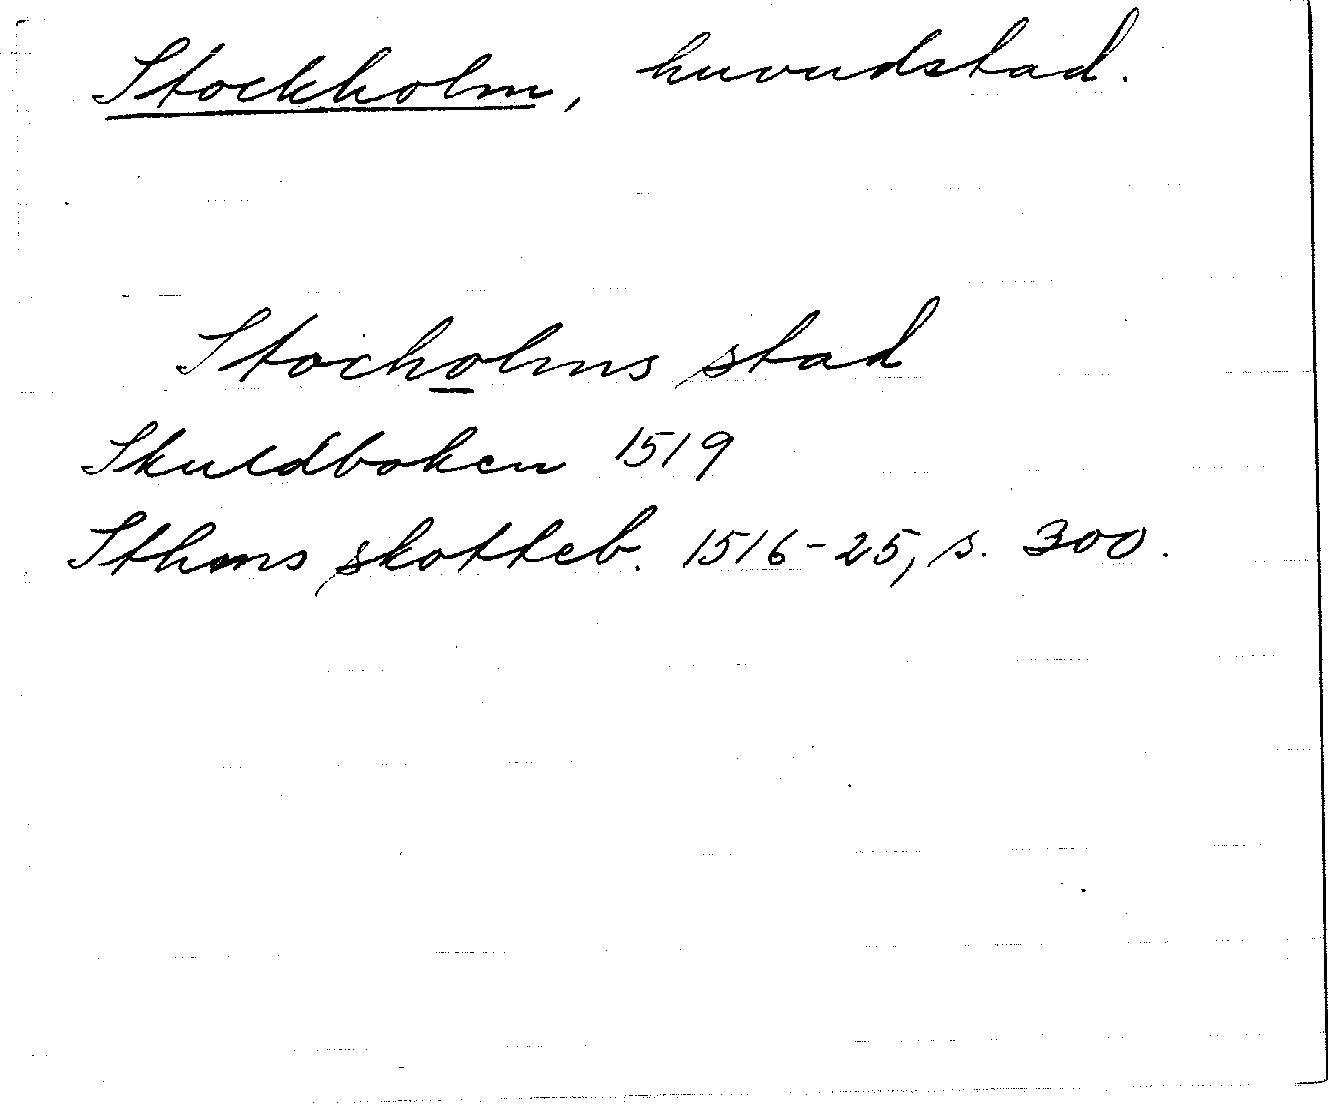 Stockholm, huvudstad.
Stocholms stad
Skuldboken 1519
Sthms skotteb. 1516-25, s. 300.